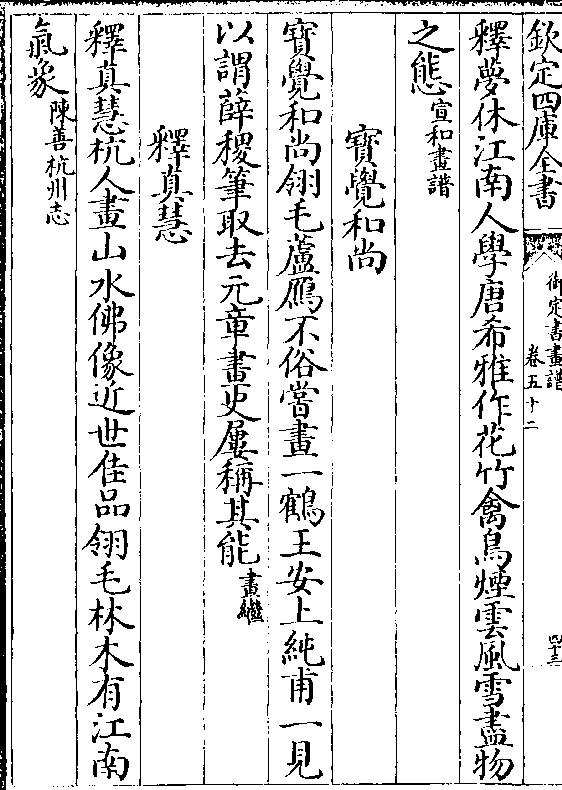 欽定四庫全書
御定書畫譜
卷五十二
四十三
釋夢休江南人學唐希雅作花竹禽鳥煙雲風雪盡物
之態宣和畫譜
寶覺和尚
寶覺和尚翎毛蘆鴈不俗嘗畫一鶴王安上純甫一見
以謂薛稷筆取去元章畫史屢稱其能畫繼
釋真慧
釋真慧杭人畫山水佛像近世佳品翎毛林木有江南
氣象陳善杭州志